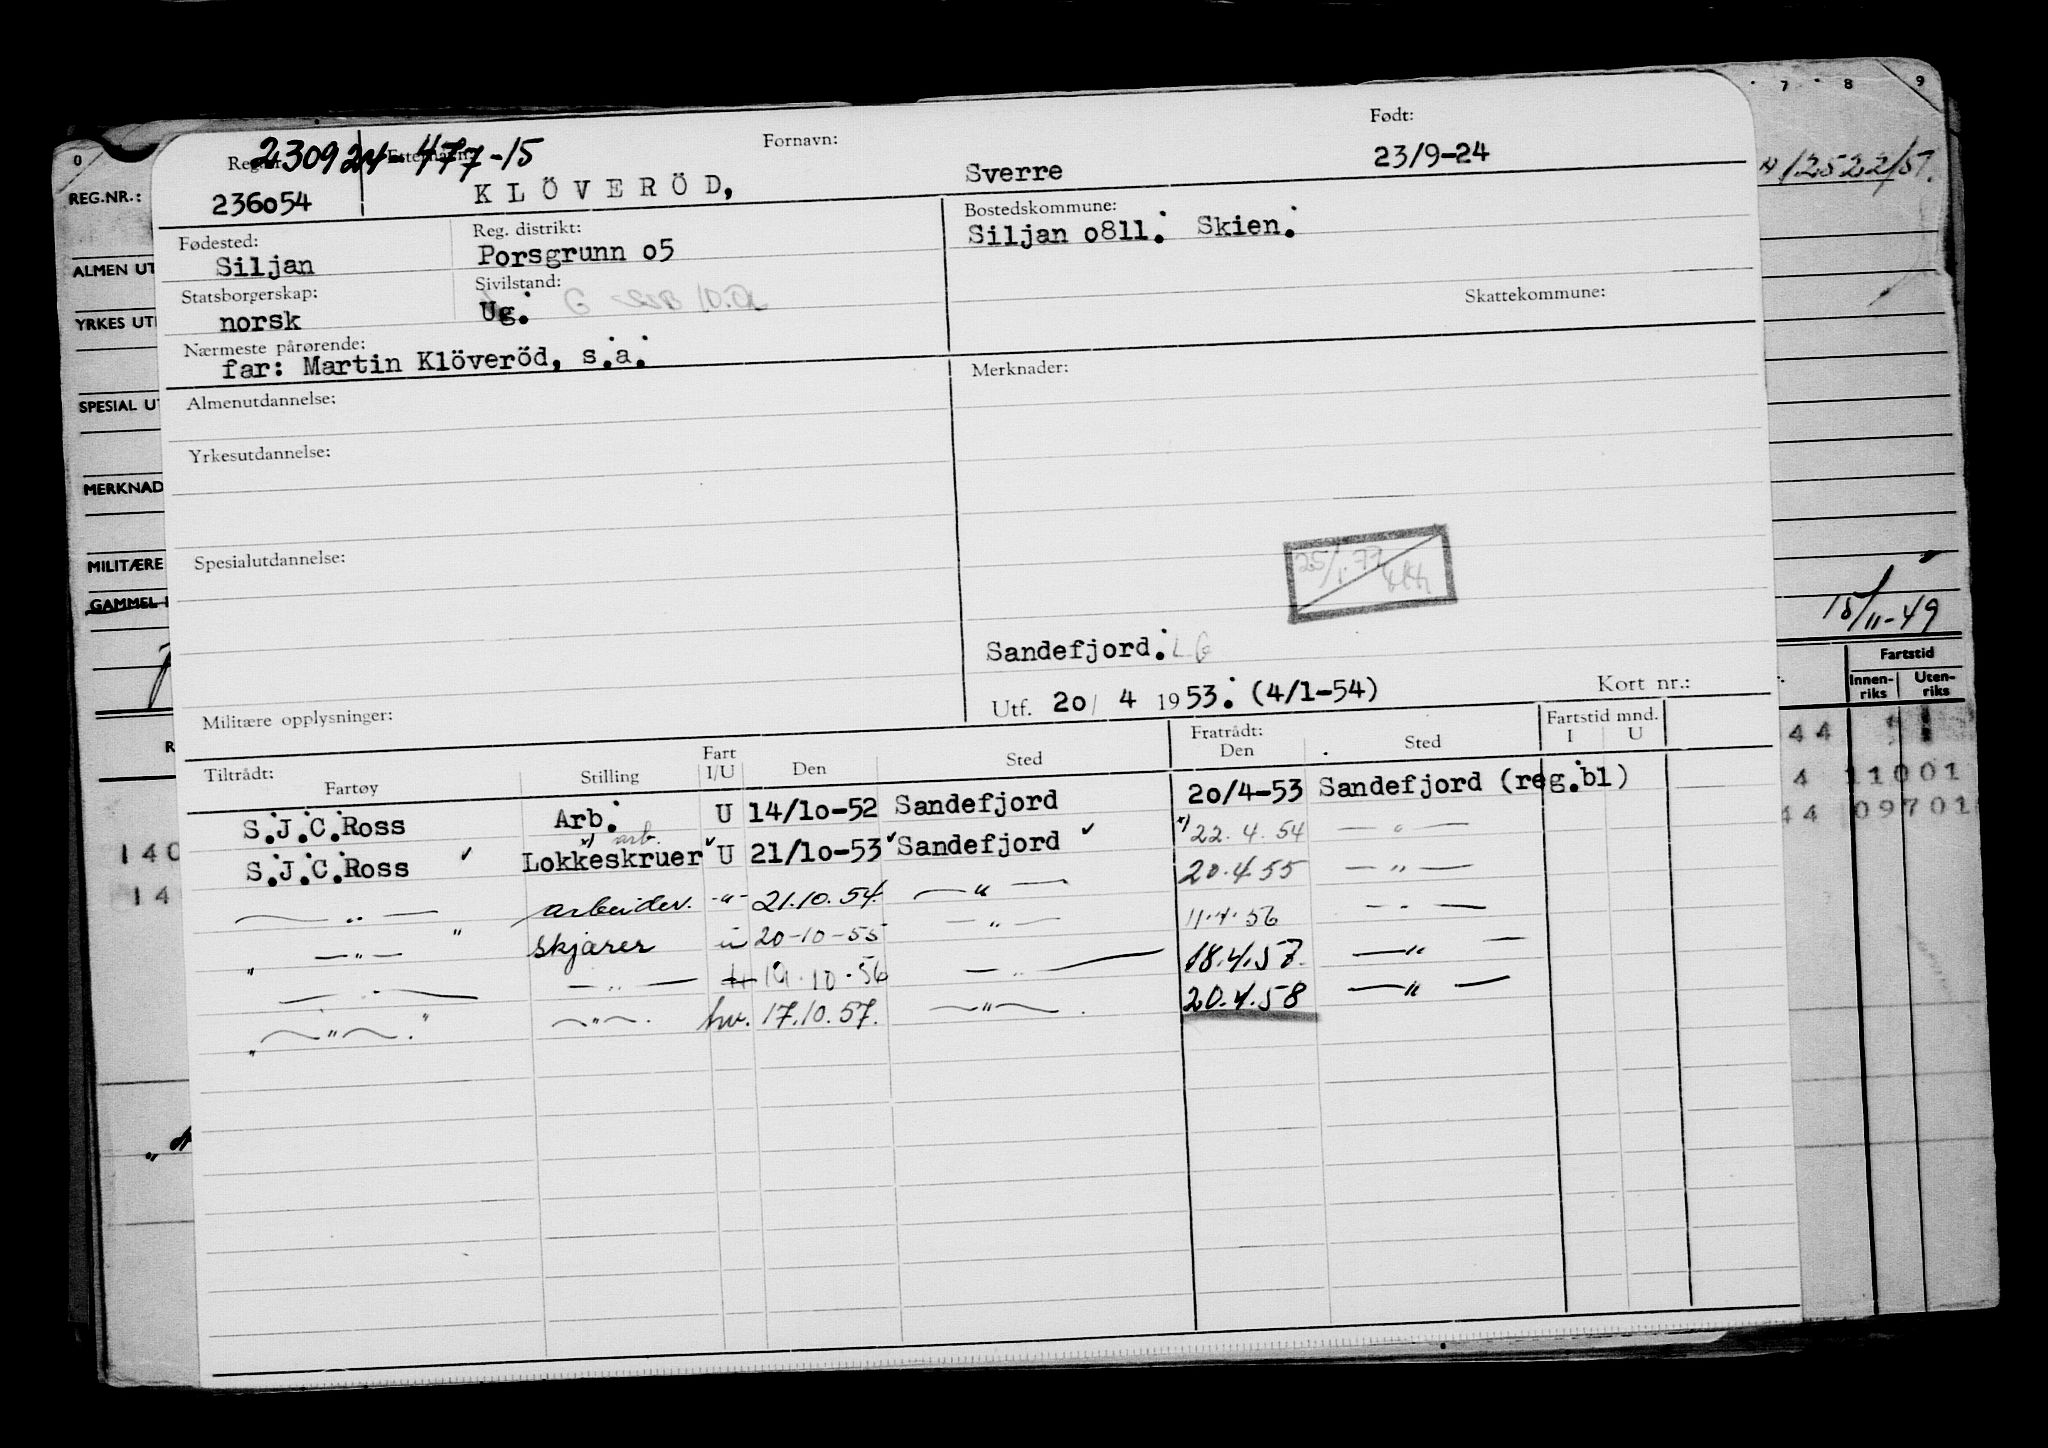 0 7 8 9
REG.NR.:
ALMEN UT
YRKES UT
SPESIAL UT
MERKNAD
MILITÆRE
GAMMEL
12522/57.
15/11-49
Fartstid
Innen-riks Uten-riks
44
4 11001
44 09701
140
14
230924-477-15
Reg.nr. Etternavn: Fornavn: Født:
236054 KLÖVERÖD, Sverre 23/9-24
Fødested: Reg. distrikt: Bostedskommune:
Siljan Porsgrunn o5 Siljan o811. Skien.
Statsborgerskap: Sivilstand: Skattekommune:
norsk Ug. G
Nærmeste pårørende:
far: Martin Klöveröd, s.a.
Almenutdannelse: Merknader:
Yrkesutdannelse:
Spesialutdannelse:
25/1.77
Sandefjord. L G
Utf. 20/ 4 1953. (4/1-54) Kort nr.:
Militære opplysninger:
Tiltrådt: Fratrådt: Fartstid mnd.
Fartøy Stilling Fart I/U Den Sted Den Sted I U
S.J.C.Ross Arb. U 14/10-52 Sandefjord 20/4-53 Sandefjord (reg.bl)
x) arb.
S.J.C.Ross ✓ Lokkeskruer ✓ U 21/10-53 ✓ Sandefjord ✓ x) 22.4.54 — " —
— " — arbeider. -"- 21.10.54. — " — 20.4.55 — " —
" — " — " skjærer u 20-10-55 — " — 11.4.56 — " —
— " — — " — 19.10.56 — " — 18.4.57. — " —
" — " — . " — " — . hv. 17.10.57. — " — . 20.4.58 — " —